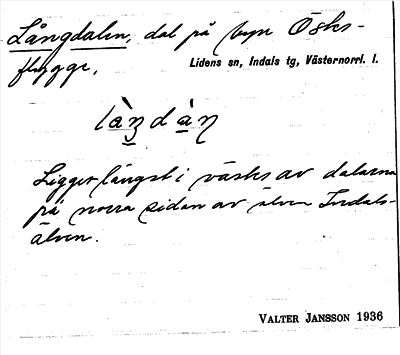 Långdalen, dal på byn Öster-
flygge,
Lidens sn, Indals tg, Västernorrl. l.
làndàn
Ligger längst i väster av dalarna
på norra sidan av älven Indals-
älven.
VALTER JANSSON 1936